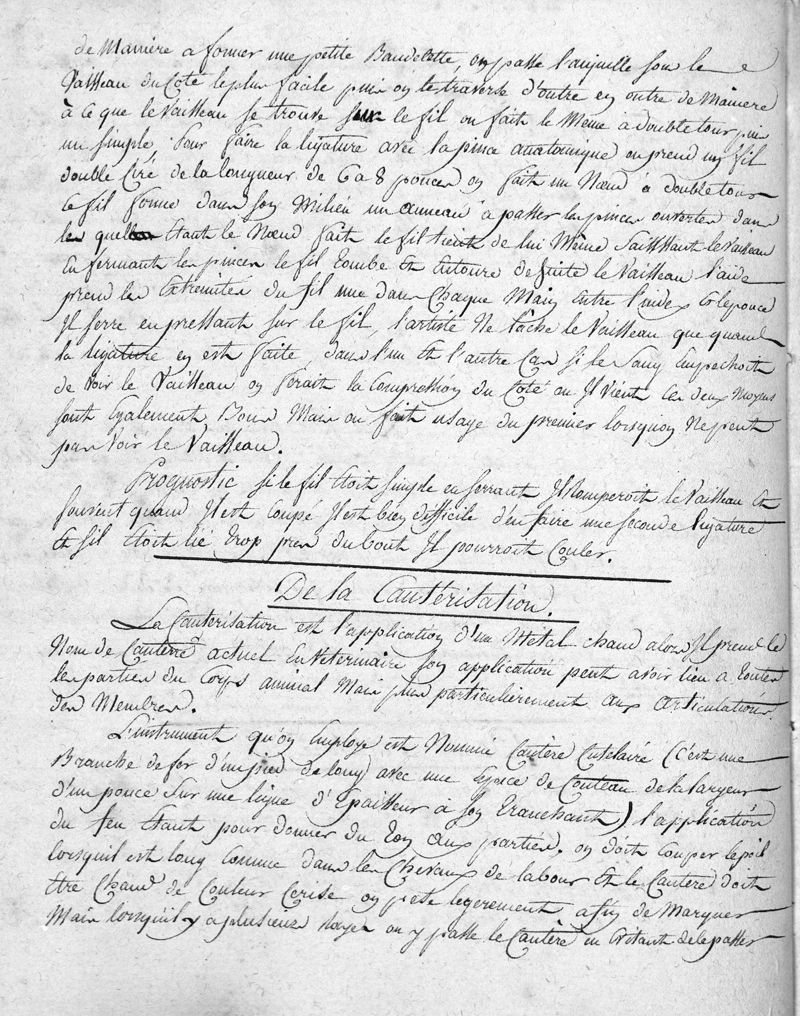 de Manière a former une petite Bandelette, on passe l'aiguille sous le
Vaisseau du Coté le plus facile puis on le traverse d'outre en outre de Maniere
à ce que le Vaisseau se trouve sur le fil on fait le Meme à double tour puis
un simple, Pour faire la ligature avec la pince anatomique on prend un fil
double Ciré de la longueur de 6 a 8 pouces on fait un Nœud à double tour
le fil forme dans son Milieu un anneau à passer les pinces ouvertes dans
les quelles Etant le Nœud fait le fil tient de lui Même Saisissant le Vaisseau
En fermant les pinces le fil tombe Et Entoure de suite le Vaisseau l'aide
prend les Extremites du fil une dans Chaque Main Entre l'index Et le pouce
Il serre en pressant sur le fil, l'artiste Ne lache le Vaisseau que quand
la ligature en est faite, dans l'un Et l'autre Cas si le Sang Empechoit
de Voir le Vaisseau on ferait la Compression du Coté ou Il Vient les deux Moyens
sont Egalement Bons Mais on fait usage du premier lorsqu'on Ne peut
pas Voir le Vaisseau.
Prognostic si le fil Etoit simple en serrant Il Romperoit le Vaisseau Et
souvent quand Il est Coupé Il est bien difficile d'en faire une seconde ligature
Et s'il Etoit lié trop pres du bout Il pourroit Couler.
De la Cautérisation.
La Cauterisation est l'application d'un Métal chaud alors Il prend le
Nom de Cautère actuel En Vétérinaire son application peut avoir lieu a toutes
les parties du Corps animal Mais plus particulièrement aux articulations
des Membres.
L'instrument qu'on Employe est Nommé Cautère Cutelaire (C'est une
Branche de fer d'un pied de long) avec une Espice de Couteau de la largeur
d'un pouce Sur une ligne d'Epaisseur à son tranchant) l'application
du feu Etant pour donner du ton aux parties, on doit Couper le poil
lorsquil est long Comme dans les Chevaux de labour Et le Cautère doit
Etre Chaud de Couleur Cerise on pose legerement afin de Marquer
Mais lorsquil y a plusieurs Rayes on y passe le Cautère en Evitant de le passer